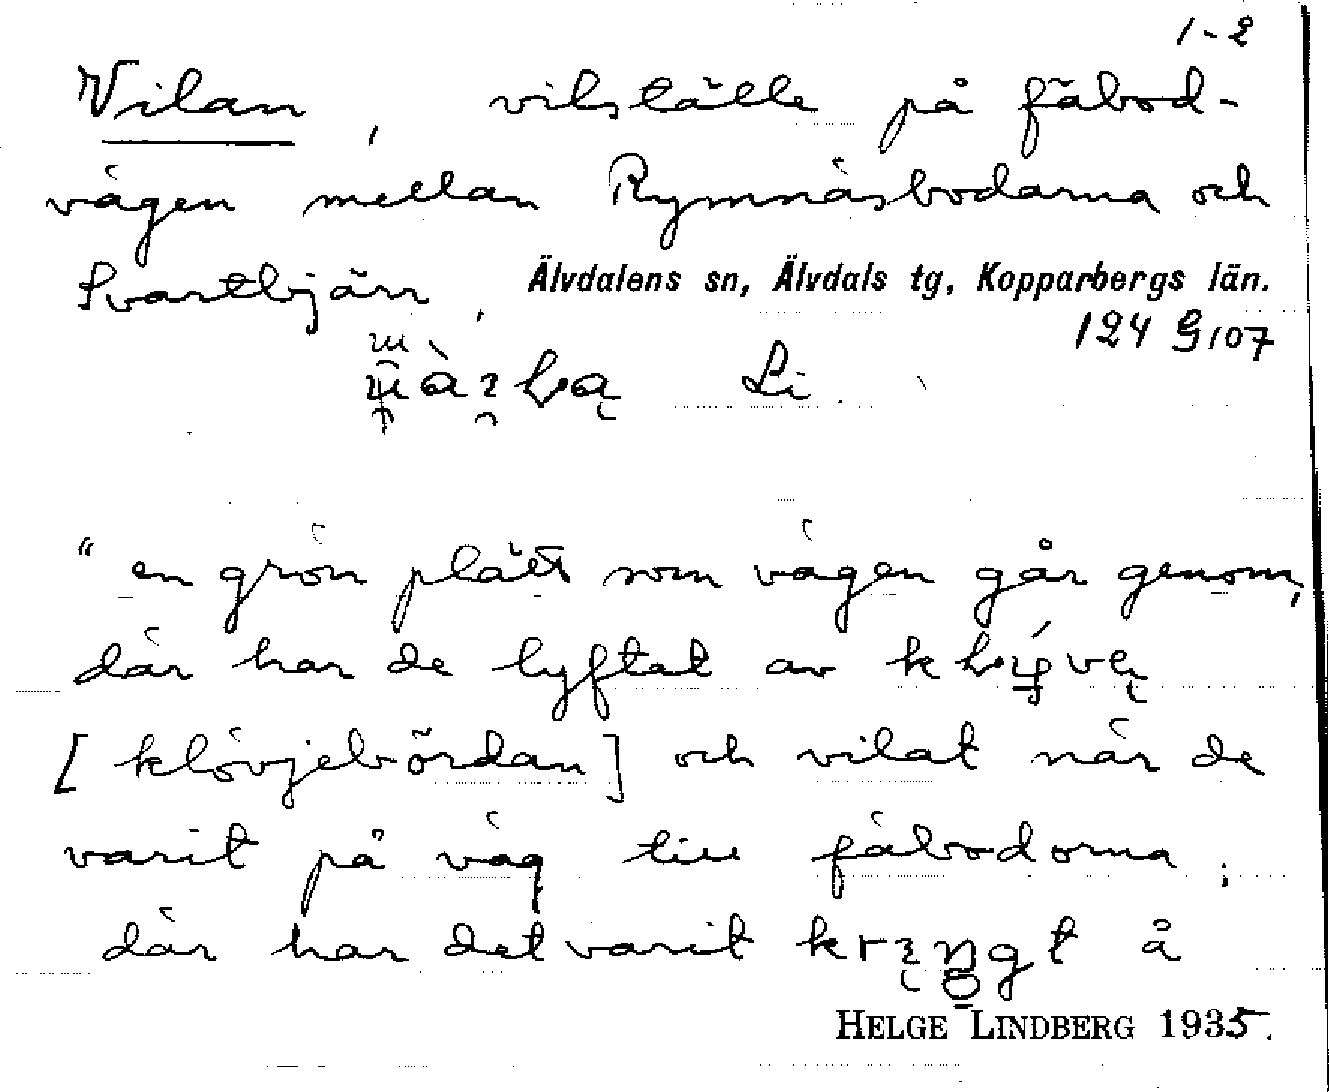 1-2
Vilan, vilställe på fäbod-
vägen mellan Rymnäsbodarna och
Svarttjärn, Älvdalens sn, Älvdals tg, Kopparbergs län.
124 G 107
Li
"en grön plätt som vägen går genom,
där har de lyftat av
[klövjebördan] och vilat när de
varit på väg till fäbodorna;
där har det varit å
HELGE LINDBERG 1935.